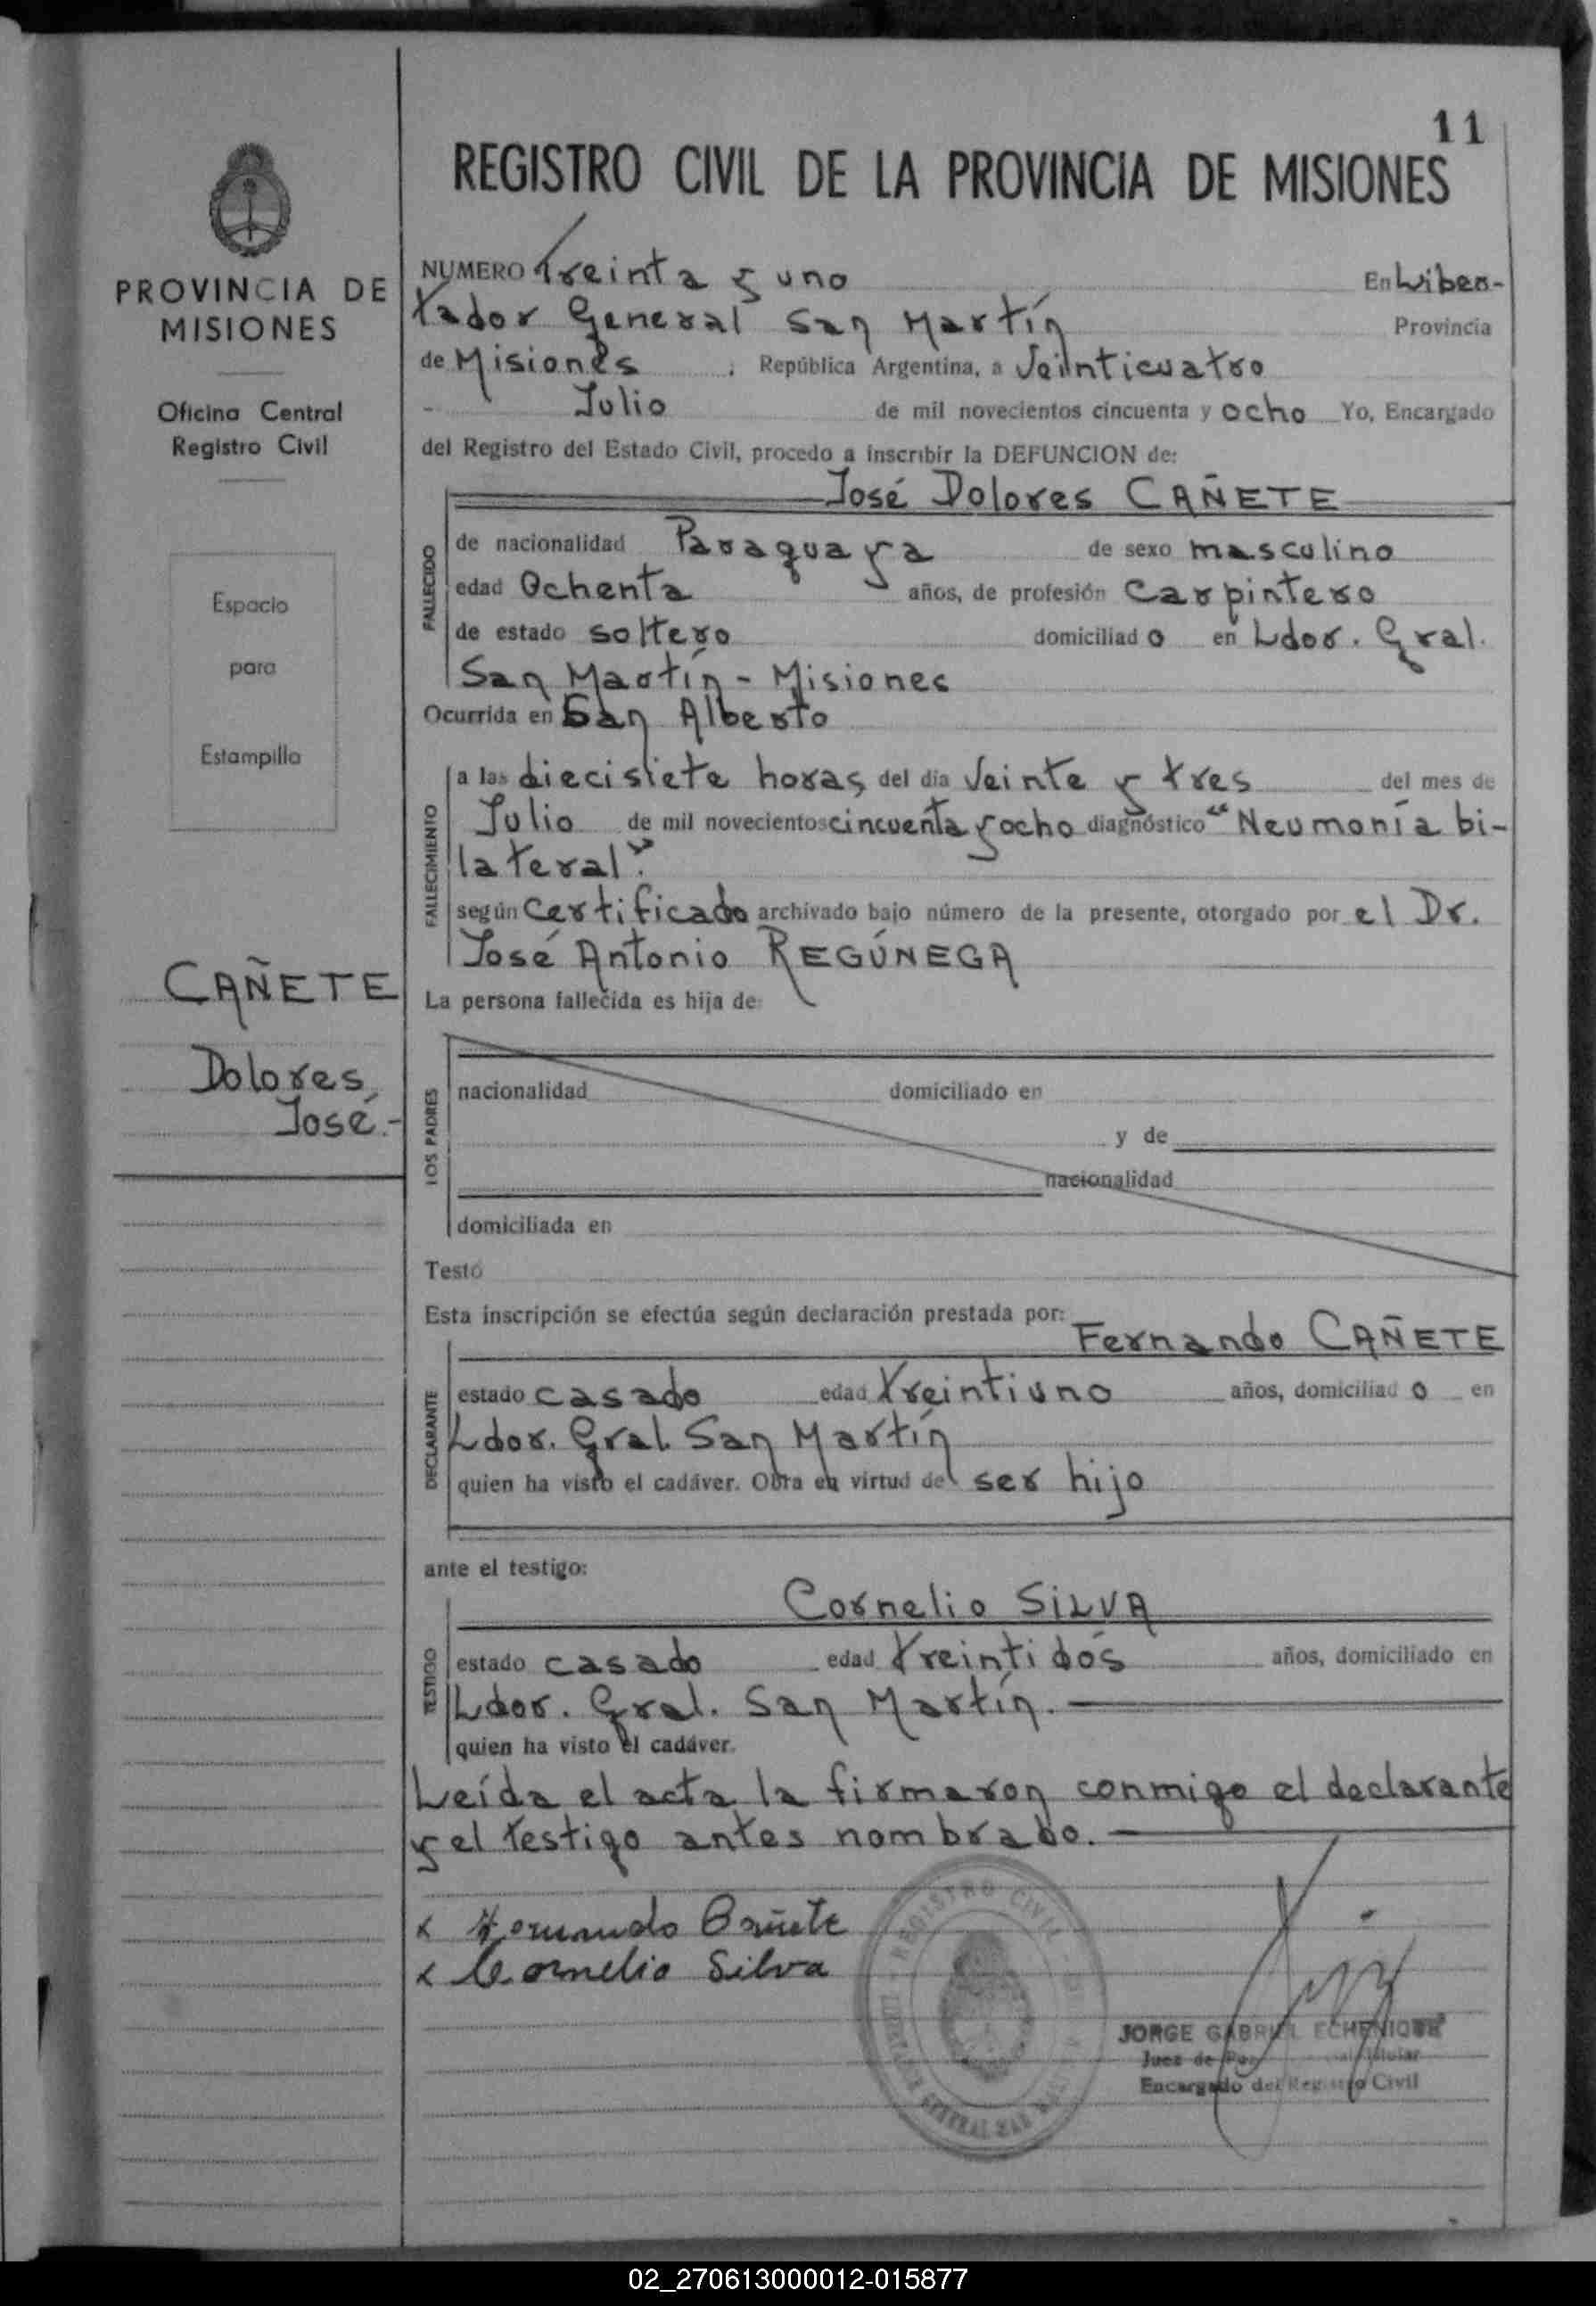 11
REGISTRO CIVIL DE LA PROVINCIA DE MISIONES
PROVINCIA DE
MISIONES
Oficina Central
Registro Civil
Espacio
para
Estampilla
CAÑETE
Dolores
José.-
NUMERO Treinta y uno En Liber-
tador General San Martín Provincia
de Misiones , República Argentina, a Veinticuatro
- Julio de mil novecientos cincuenta y ocho Yo, Encargado
del Registro del Estado Civil, procedo a inscribir la DEFUNCION de:
José Dolores CAÑETE
FALLECIDO
de nacionalidad Paraguaya de sexo masculino
edad Ochenta años, de profesión Carpintero
de estado soltero domiciliado en Ldor. Gral.
San Martín - Misiones
Ocurrida en San Alberto
FALLECIMIENTO
a las diecisiete horas del día Veinte y tres del mes de
Julio de mil novecientos cincuenta y ocho diagnóstico "Neumonía bi-
lateral".
según Certificado archivado bajo número de la presente, otorgado por el Dr.
José Antonio REGÚNEGA
La persona fallecida es hija de:
LOS PADRES
nacionalidad domiciliado en
y de
nacionalidad
domiciliada en
Testó
Esta inscripción se efectúa según declaración prestada por:
Fernando CAÑETE
DECLARANTE
estado casado edad treintiuno años, domiciliado en
Ldor. Gral. San Martín
quien ha visto el cadáver. Obra en virtud de ser hijo
ante el testigo:
Cornelio SILVA
TESTIGO
estado casado edad treintidós años, domiciliado en
Ldor. Gral. San Martín.
quien ha visto el cadáver.
Leída el acta la firmaron conmigo el declarante
y el testigo antes nombrado.
x Fernando Cañete
x Cornelio Silva
REGISTRO CIVIL
GENERAL SAN
JORGE GABRIEL ECHENIQUE
Juez de Paz Titular
Encargado del Registro Civil
02_270613000012-015877